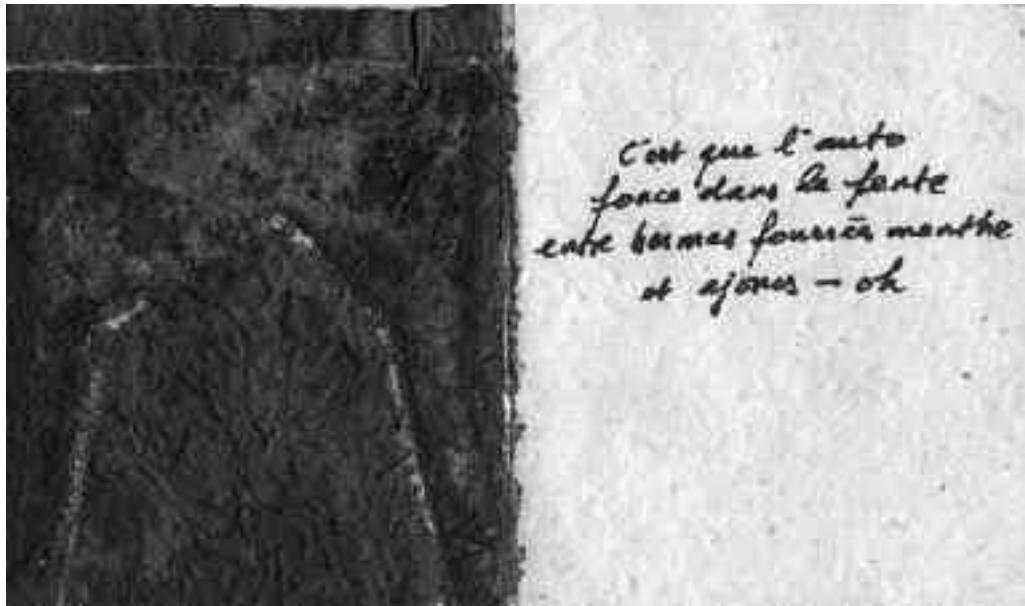 C'est que l'auto
fonce dans la fente
entre bermes fourrées menthe
et ajoncs – oh